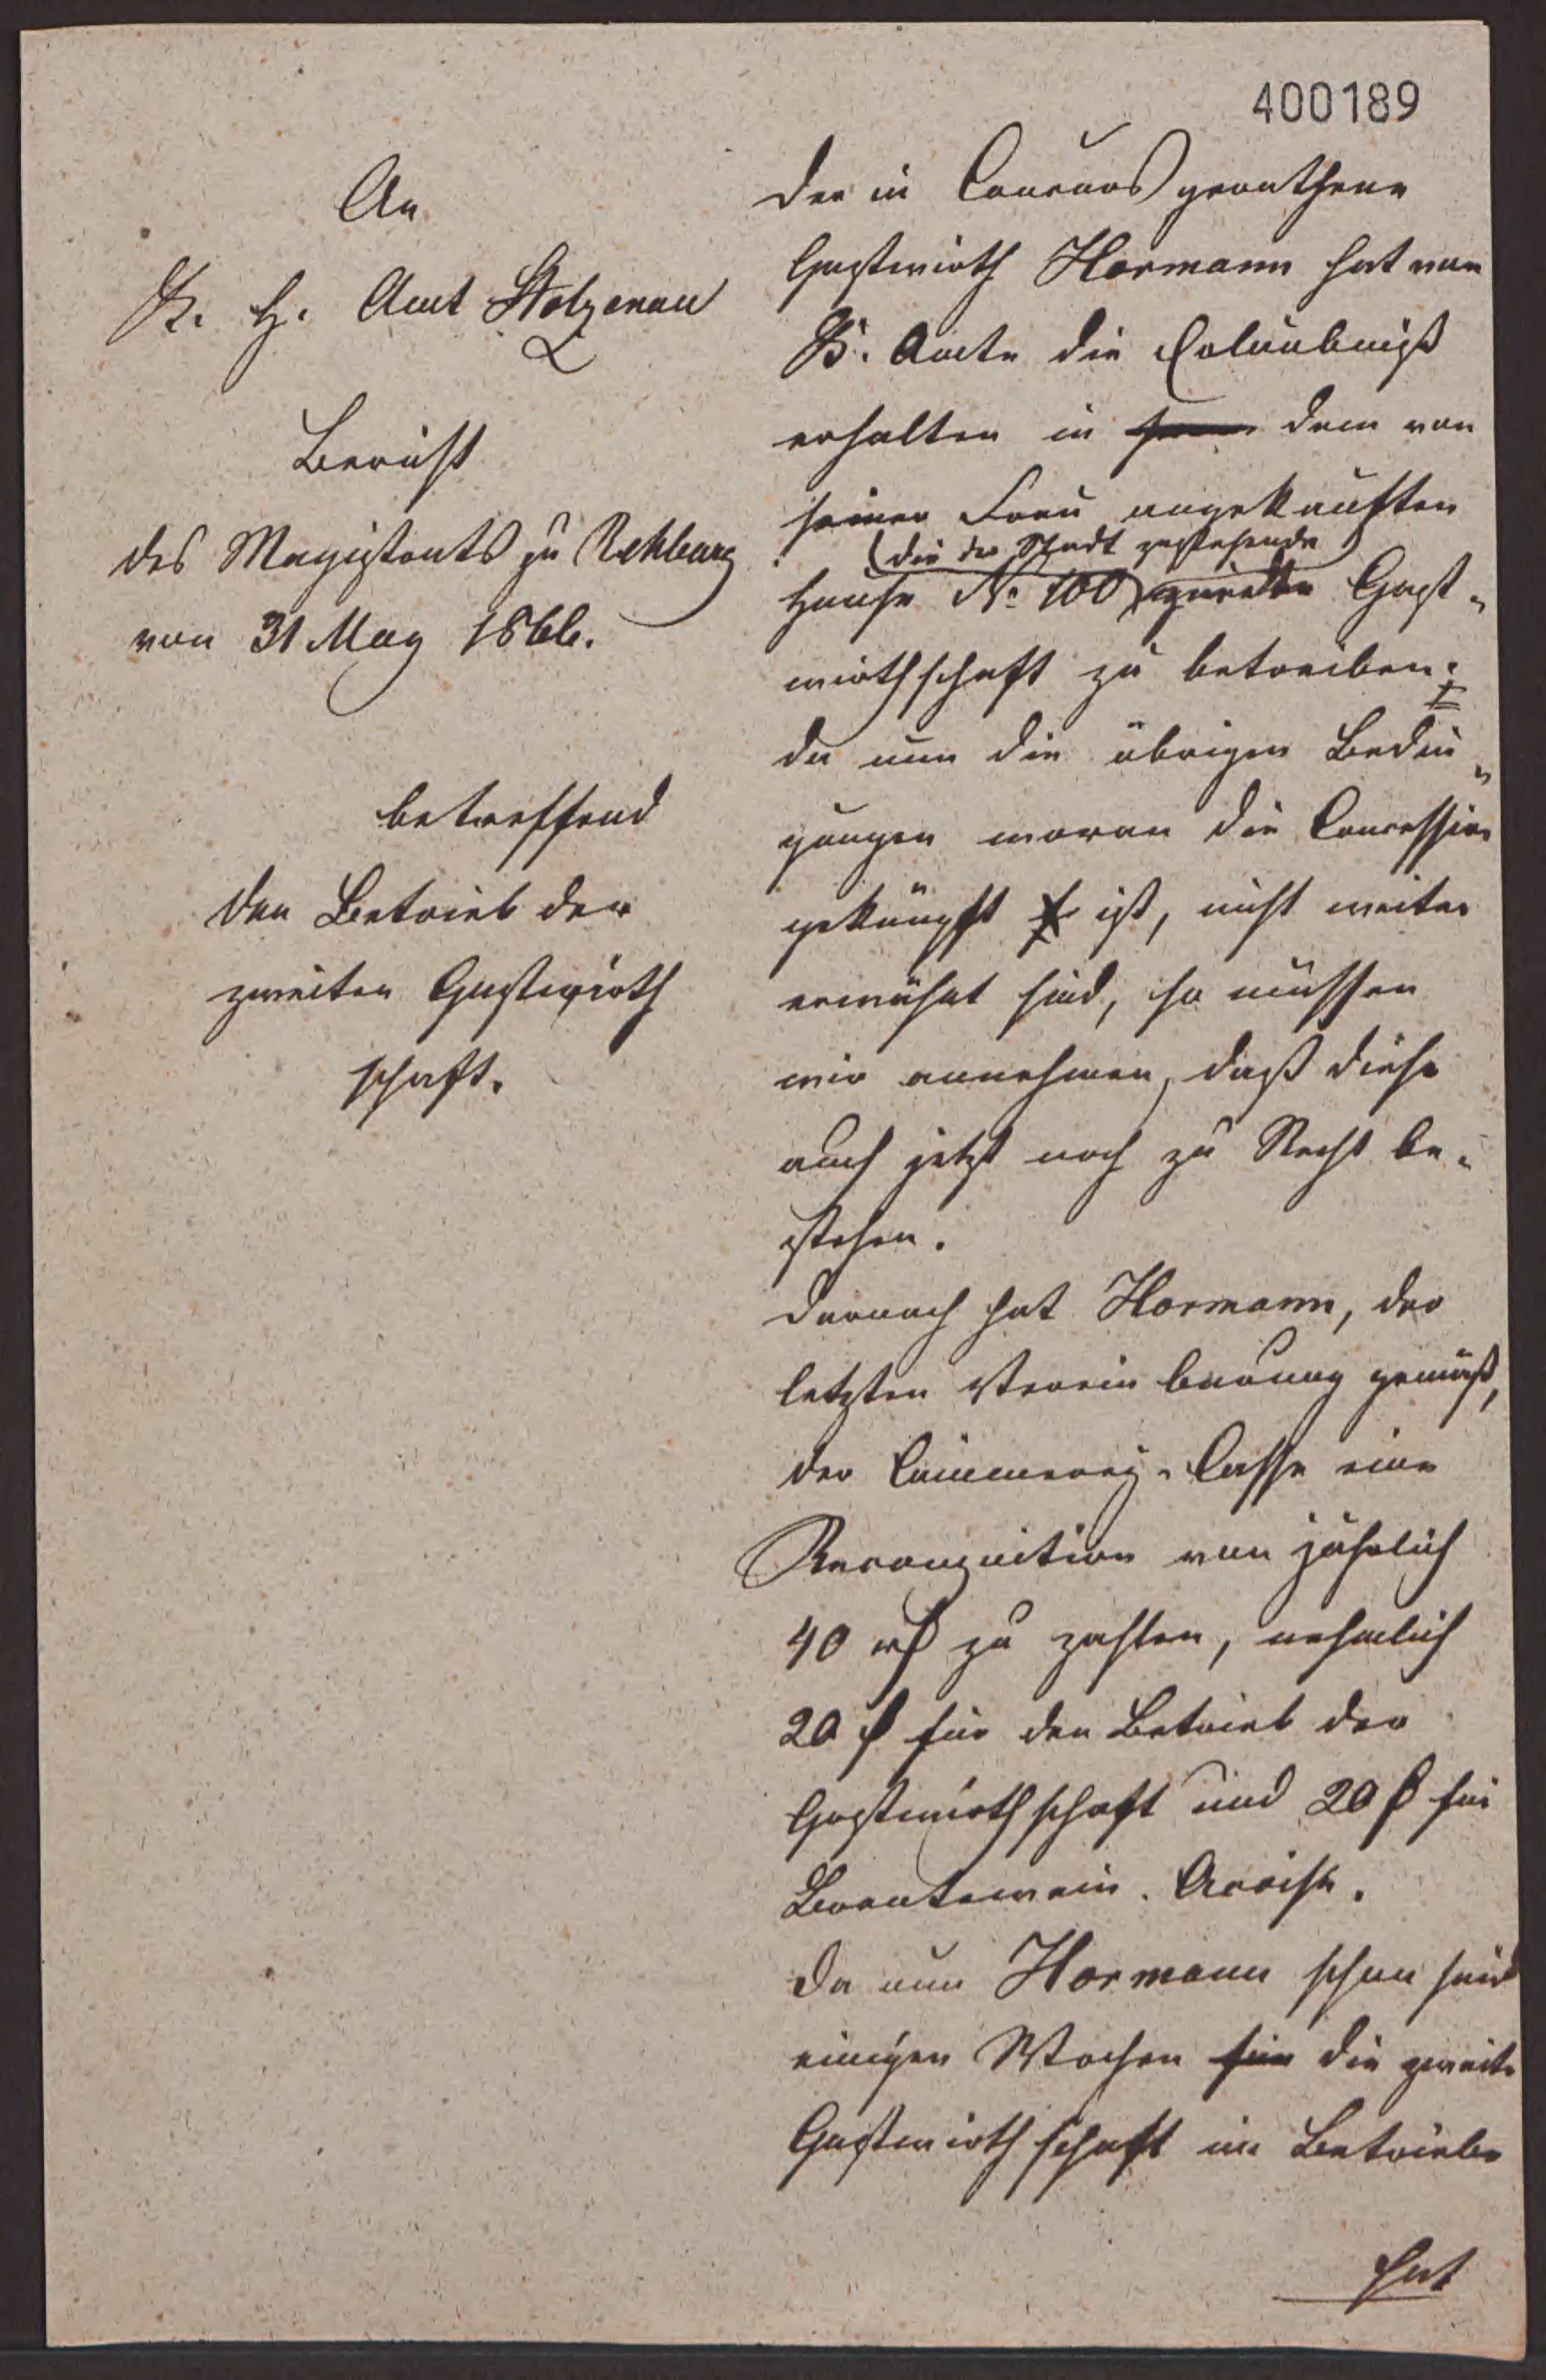 400189
An
K. H. Amt Stolzenau
Bericht
des Magistrats zu Rehburg
von 31 May 1866.
betreffend
den Betrieb der
zweiten Gastwirth
schaft.
Der in Concurs gerathene
Gastwirth Hormann hat vom
K. Amte die Erlaubniß
erhalten in dem von
seiner Frau angekauften
(die der Stadt zustehende)
Hause No 100 zweite Gast-
wirthschaft zu betreiben;
da nun die übrigen Bedin-
gungen woran die Concession
geknüpft ist, nicht weiter
erwähnt sind, so müssen
wir annehmen, daß diese
auch jetzt noch zu Recht be-
stehen.
Darnach hat Hormann, der
letzten Vereinbarung gemäß,
der Cämmerey-Casse eine
Recognition von jährlich
40 rß zu zahlen, nehmlich
20 ß für den Betrieb der
Gastwirthschaft und 20 ß für
Brantewein-Accise.
Da nun Hormann schon seid
einigen Wochen für die zweite
Gastwirthschaft im Betriebe
hat